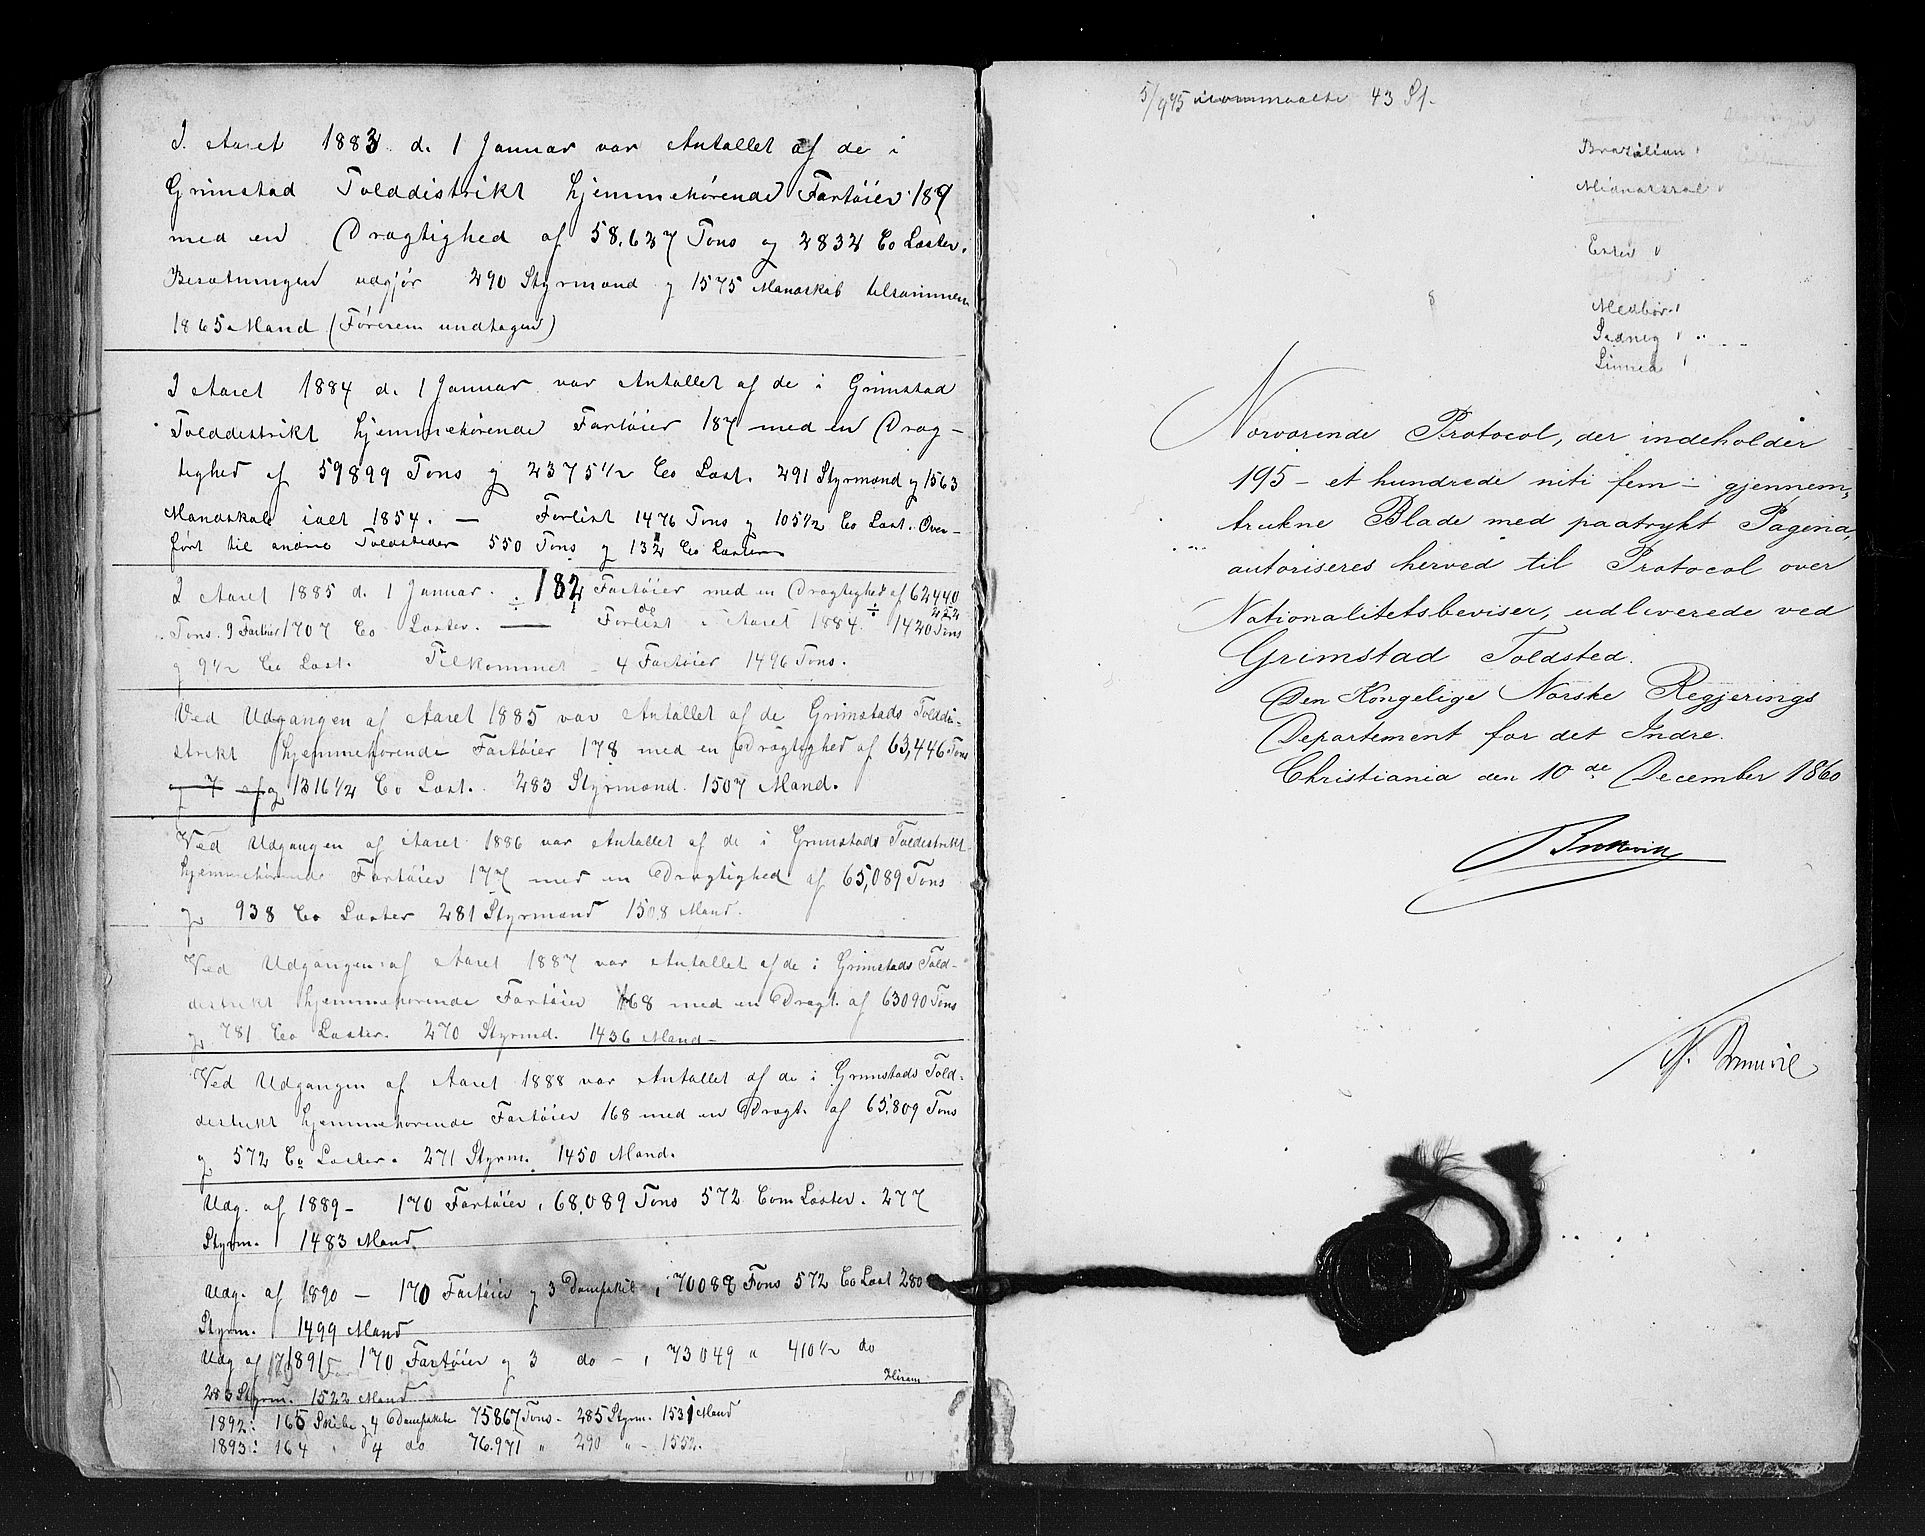 I Aaret 1883 d. 1 Januar var Antallet af de i
Grimstad Tolddistrikt hjemmehørende Fartøier 189
med en Drægtighed af 58.627 Tons og 2832 Co Læster.
Besætningen udgjør 290 Styrmænd og 1575 Mandskab tilsammen
1865 Mand (Førerem undtagen)
I Aaret 1884 d. 1 Januar var Antallet af de i Grimstad
Tolddistrikt hjemmehørende Fartøier 187 med en Dræg-
tighed af 59899 Tons og 2375 1/2 Co Læst. 291 Styrmænd og 1563
Mandskab ialt 1854. — Forlist 1476 Tons og 105 1/2 Co Læst. Over-
ført til andre Toldsteder 550 Tons og 132 Co Læster
I Aaret 1885 d. 1 Januar. 182 Fartøier med en Drægtighed af 62440
Tons. 9 Fartøier 1707 Co Læster. — Forlist i Aaret 1884 1420 Tons
og 9 1/2 Co Læst. Tilkommet 4 Fartøier 1496 Tons.
Ved Udgangen af Aaret 1885 var Antallet af de Grimstads Tolddi-
strikt hjemmehørende Fartøier 178 med en Drægtighed af 63,446 Tons
og 1316 1/2 Co Læst. 283 Styrmænd 1507 Mand.
Ved Udgangen af Aaret 1886 var Antallet af de i Grimstads Toldistrikt
hjemmehørende Fartøier 177 med en Drægtighed af 65,089 Tons
og 938 Co Læster 281 Styrmænd 1508 Mand.
Ved Udgangen af Aaret 1887 var Antallet af de i Grimstads Told-
distrikt hjemmehørende Fartøier 168 med en Drægt. af 63090 Tons
og 781 Co Læster. 270 Styrmd. 1436 Mand —
Ved Udgangen af Aaret 1888 var Antallet af de i Grimstads Told-
distrikt hjemmehørende Fartøier 168 med en Drægt. af 65,809 Tons
og 572 Co Læster. 271 Styrm. 1450 Mand.
Udg. af 1889 — 170 Fartøier, 68,089 Tons 572 Com Læster. 277
Styrm. 1483 Mand.
Udg. af 1890 — 170 Fartøier og 3 Dampskib, 70088 Tons 572 Co Læst 280
Styrm. 1499 Mand
Udg af 1891 170 Fartøier og 3 do — 73049 " 410 1/2 do
283 Styrm. 1522 Mand
1892: 165 Skibe og 4 Dampskibe 75867 Tons — 285 Styrm. 1531 Mand
1893: 164 " 4 do 76.971 " 290 " — 1552.
5/9 95 43 St.
Brazilian
Midnatssol
Ester
Medbør
Sidney
Linnea
Nærværende Protocol, der indeholder
195 — et hundrede niti fem — gjennem-
trukne Blade med paatrykt Pagina,
autoriseres herved til Protocol over
Nationalitetsbeviser, udleverede ved
Grimstad Toldsted.
Den Kongelige Norske Regjerings
Departement for det Indre.
Christiania den 10de December 1860